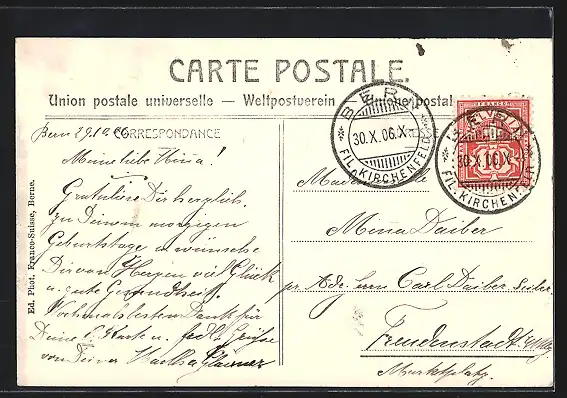 CARTE POSTALE.
Union postale universelle — Weltpostverein — Unione postal
CORRESPONDANCE
Bern 29.10.06
Meine liebe Mina!
Gratuliere Dir herzlich
zu Deinem morgigen
Geburtstage u. wünsche
Dir von Herzen viel Glück
u. gute Gesundheit.
Nochmals besten Dank für
Deine l. Karte u. herzl. Grüsse
von Deiner
Ed. Phot. Franco-Suisse, Berne.
BERN
30.X.06.X
FIL. KIRCHENFELD
FRANCO
BERN
30.X.06.X
FIL. KIRCHENFELD
Mina Daiber
pr. Adr. Herrn Carl Daiber, Seiler
Freudenstadt
Marktplatz.